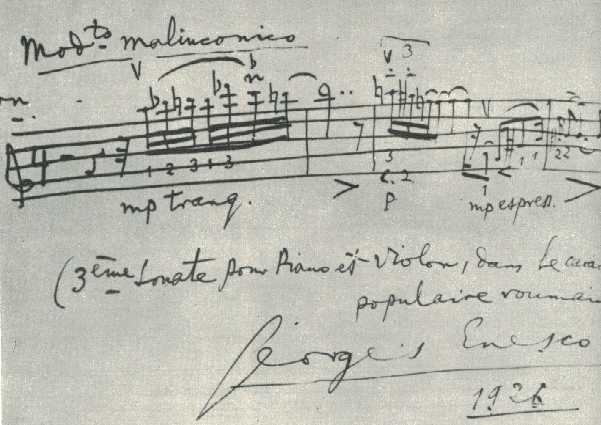 Modto malinconico
V
V 3
on.
1 2 3 1 3
3
2
1
1 1
2 2
mp tranq.
p
mp espress.
(3ème Sonate pour Piano et Violon, dans le cara
populaire roumai
Georges Enesco
1926